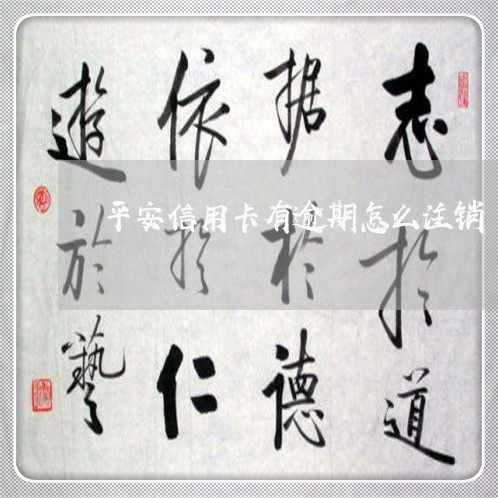 志於道
据於德
依於仁
遊於藝
平安信用卡有逾期怎么注销